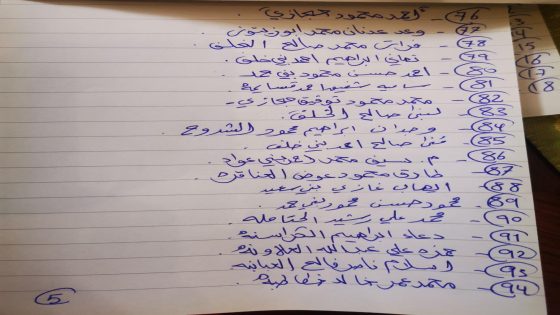 76 - أحمد محمود حجازي
77 - وعد عدنان محمد أبو زيتون
78 - فراس محمد صالح الخلف
79 - تهاني ابراهيم احمد بني خلف
80 - احمد حسن محمود بني حمد
81 - سامية شفيق احمد قسايمة
82 - محمد محمود توفيق حجازي
83 - لبنى صالح الخلف
84 - وجدان ابراهيم محمود الشدوح
85 - صالح احمد بني خلف
86 - م. سيف محمد احمد بني عواد
87 - طارق محمود عوض العناقرة
88 - الهام غازي بني سعيد
89 - محمود حسن محمود بني حمد
90 - محمد علي رشيد الختاملة
91 - دعاء ابراهيم الكراسنة
92 - حمزه علي عبدالله العلاونة
93 - اسلام ناصر فالح العبابنه
94 - محمد عمر خالد غرايبة
5
15
16
17
18